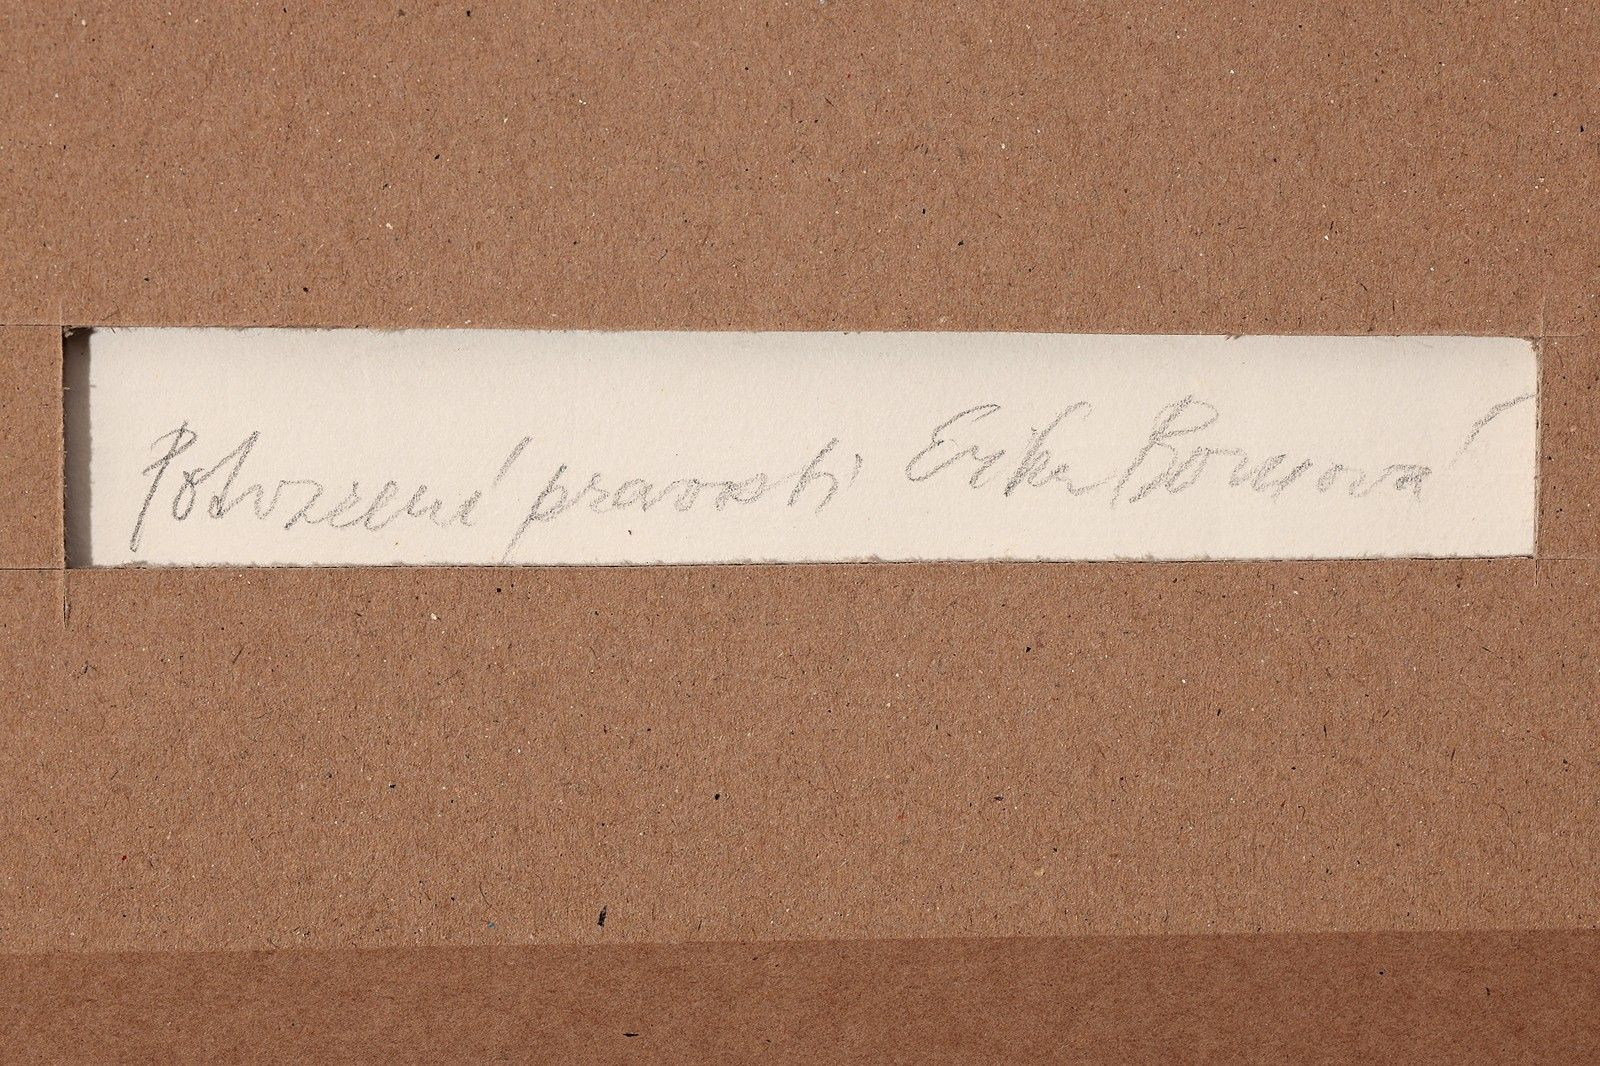 Potvrzení pravosti Erika Bornová